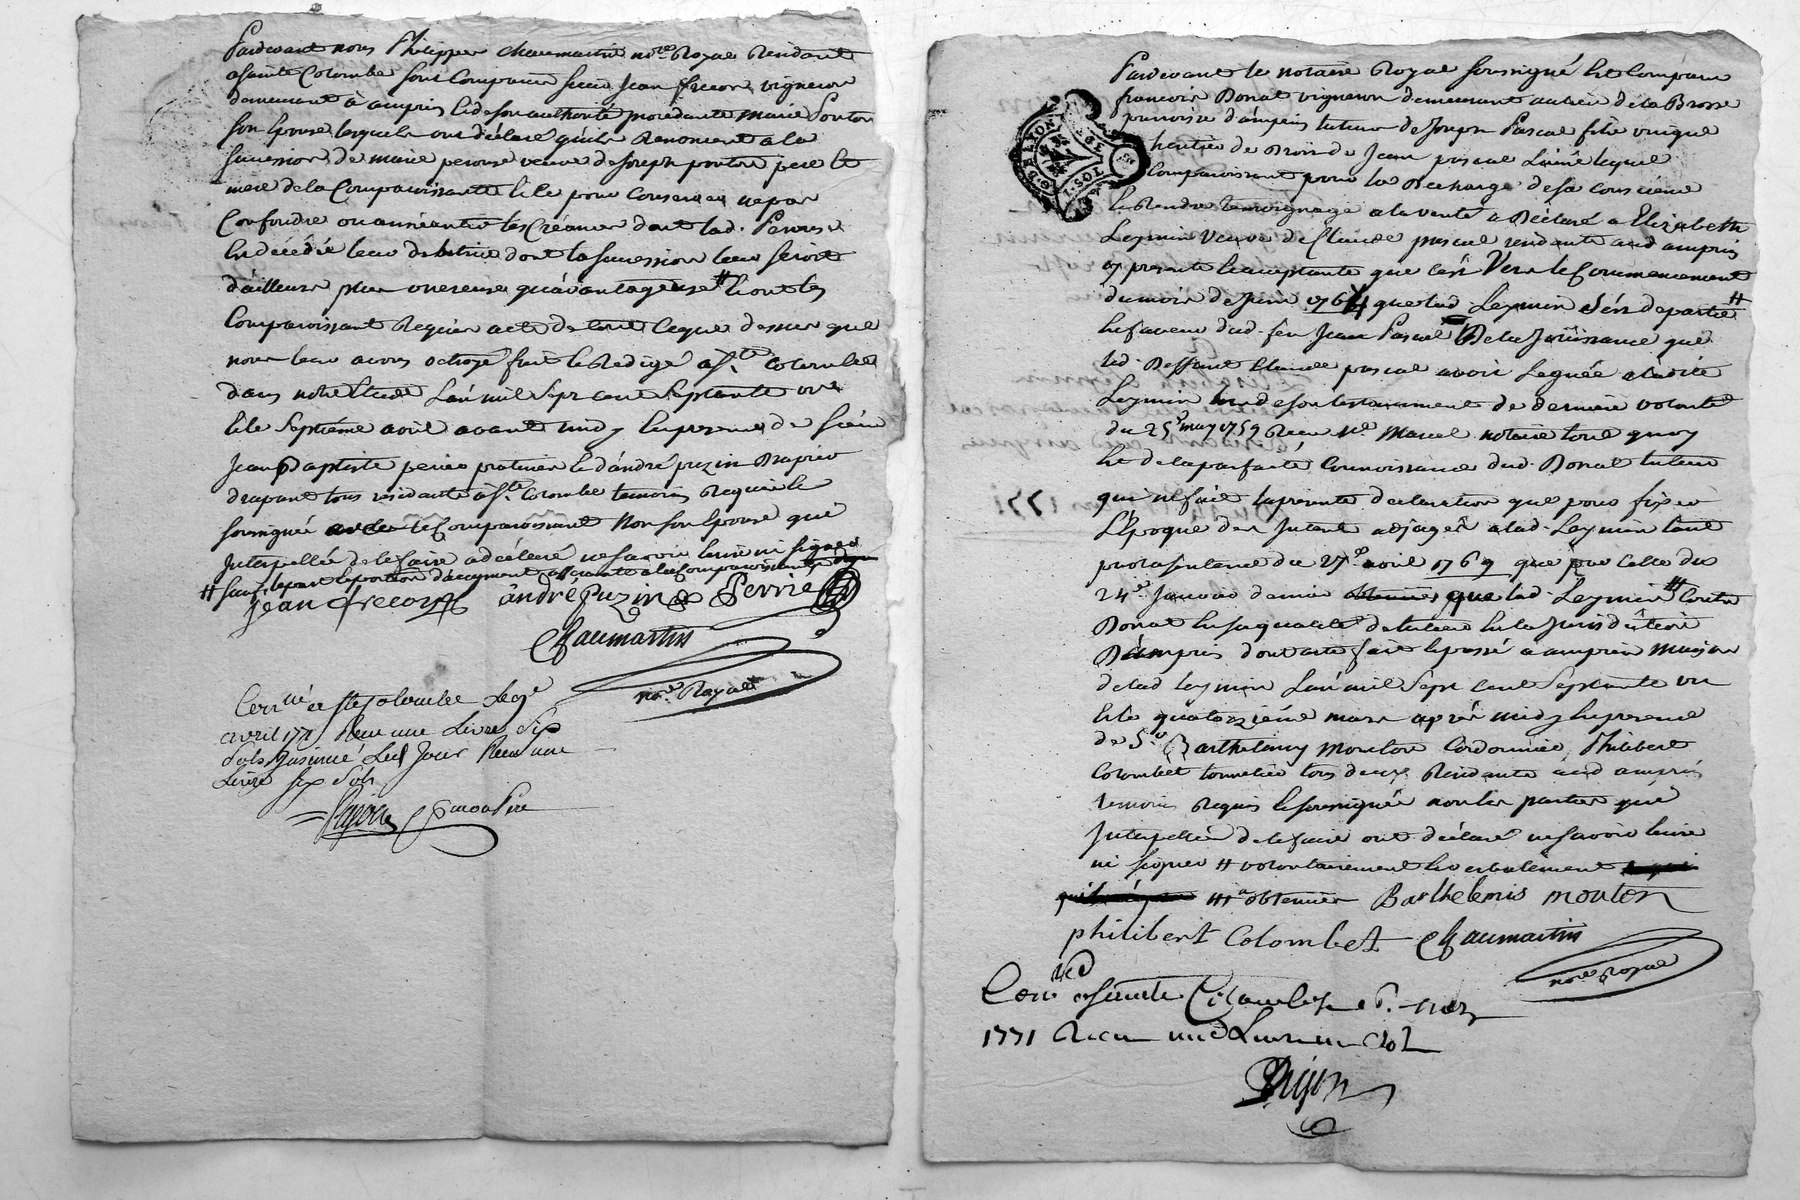 Pardevant nous Philippe Chaumartin no.re Royal Résidant
a Sainte Colombe sont Comparus sieur Jean Frecon vigneron
demeurant à ampuis et de son authorité procédante Marie Ponton
son Epouse lesquels ont déclaré qu'ils Renoncent a la
sucession de marie perouse veuve de Joseph ponton pere et
mere de la Comparoissante et ce pour Conserver ne pas
Confondre ou anéantir les Créances dont lad. Perouse
Est décédée leur debitrice dont la sucession leur seroit
d'ailleurs plus onereuse qu'avantageuse # Et ont les
Comparoissant Requis acte de tout ce que dessus que
nous leur avons octroyé fait et Redigé a S.te Colombe
dans notre Etude L'an mil sept cent septante un
et le septième avril avant midy En presence de sieur
Jean Baptiste perier praticien et d'andré puzin Drapier
drapant tous résidants à S.te Colombe temoins Requis et
soussignés avec le Comparoissant Non son Epouse qui
Interpellée de le faire a déclaré ne savoir Ecrire ni signer
# sauf la part et portion d'augment afferante à la Comparoissante
Jean frecon andré Puzin Perrie
Chaumartin
no.re Royal
Con.llé a Ste Colombe le 9e
avril 1771 Recu une Livre Six
Sols Insinué Led Jour Recu une
Livre six Sols
Pardevant le notaire Royal soussigné Est Comparu
francois Donat vigneron demeurant au lieu de la Brosse
parroisse d'ampuis tuteur de Joseph Pascal fils unique
héritier de Droit de Jean pascal Lainé lequel
Comparoissant pour la Décharge de sa Conscience
Et Rendre temoignage a la verité a Déclaré a Elizabeth
Leymin Veuve de Claude pascal residante aud ampuis
cy presente Et acceptante que c'est Vers le Commencement
du mois de Juin 1764 que lad Leymin s'est departie #
En faveur dud. feu Jean Pascal De la Jouissance que
led. Deffunt Claude pascal avoit Leguée a ladite
Leymin dans son testament de derniere volonté
du 25e may 1759 Recu Me Marcel notaire tout quoy
Est de la parfaite Connoissance dud. Donat tuteur
qui ne fait la presente declaration que pour fixer
L'Epoque des Interets adjugés a lad. Leymin tant
par sentence du 27e avril 1769 que par Celle du
24e Janvier dernier que lad. Leymin ## Contre
Donat En sa qualité de tuteur En la Jurisdiction
D'ampuis dont acte fait et passé a ampuis Maison
de lad Leymin L'an mil sept cent septante un
et le quatorzième mars après midy En presence
de Sr Barthelemy Mouton Cordonnier, Philibert
Colombet tonnelier tous deux Résidants aud ampuis
temoins Requis et soussignés non les parties qui
Interpellées de le faire ont déclaré ne savoir Ecrire
ni signer # volontairement et verbalement
## a obtenues Barthelemis mouton
philibert Colombet Chaumartin
no.re Royal
Con.llé a Sainte Colombe le mars
1771 Recu
G. DE LYON
1. SOL